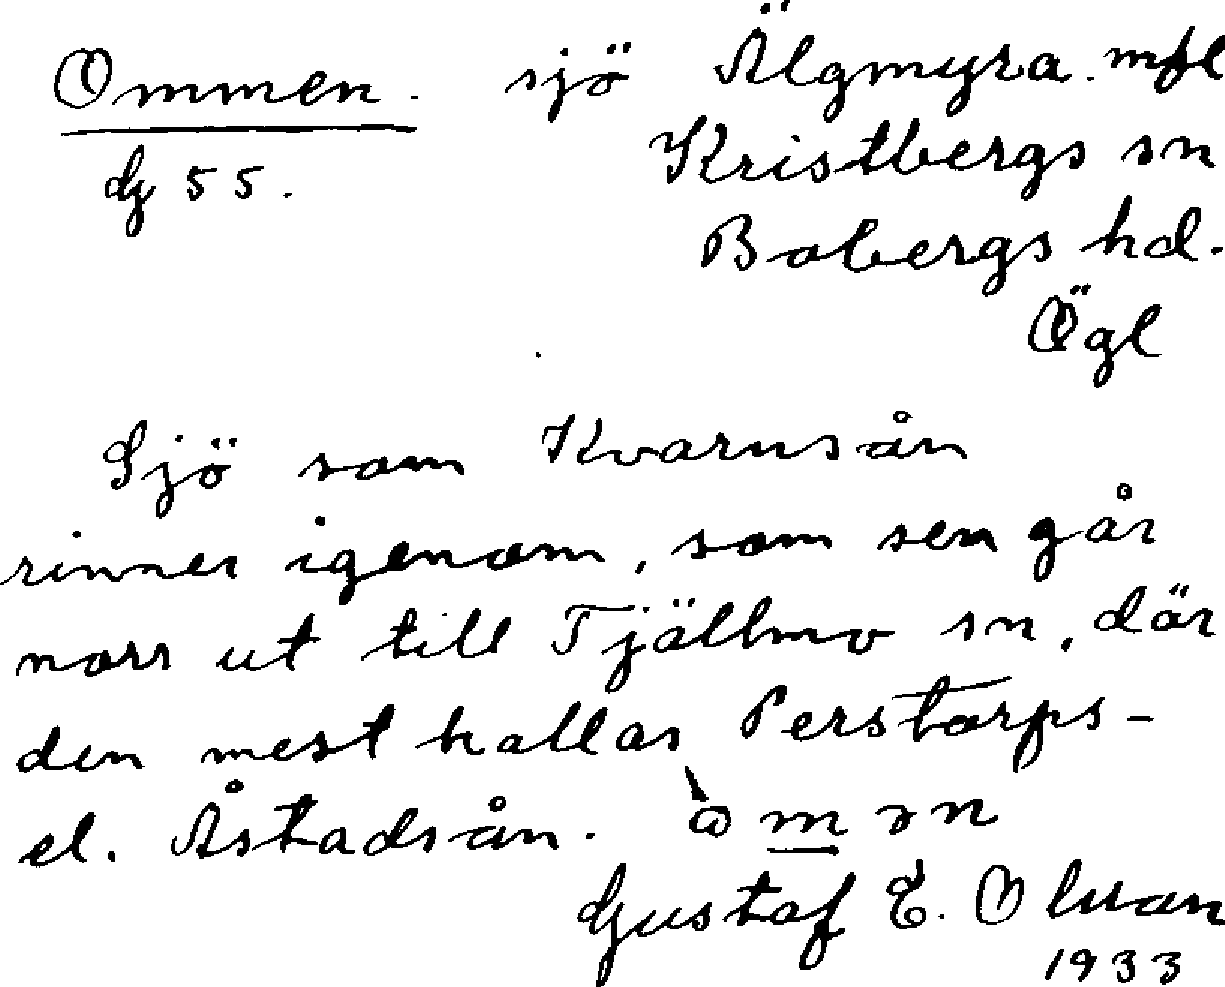 Ommen. sjö Älgmyra. mfl
dg 55. Kristbergs sn
Bobergs hd.
Ögl
Sjö som Kvarnsån
rinner igenom, som sen går
norr ut till Tjällmo sn, där
den mest kallas Perstorps-
el. Åstadsån.
Gustaf E. Olsson
1933